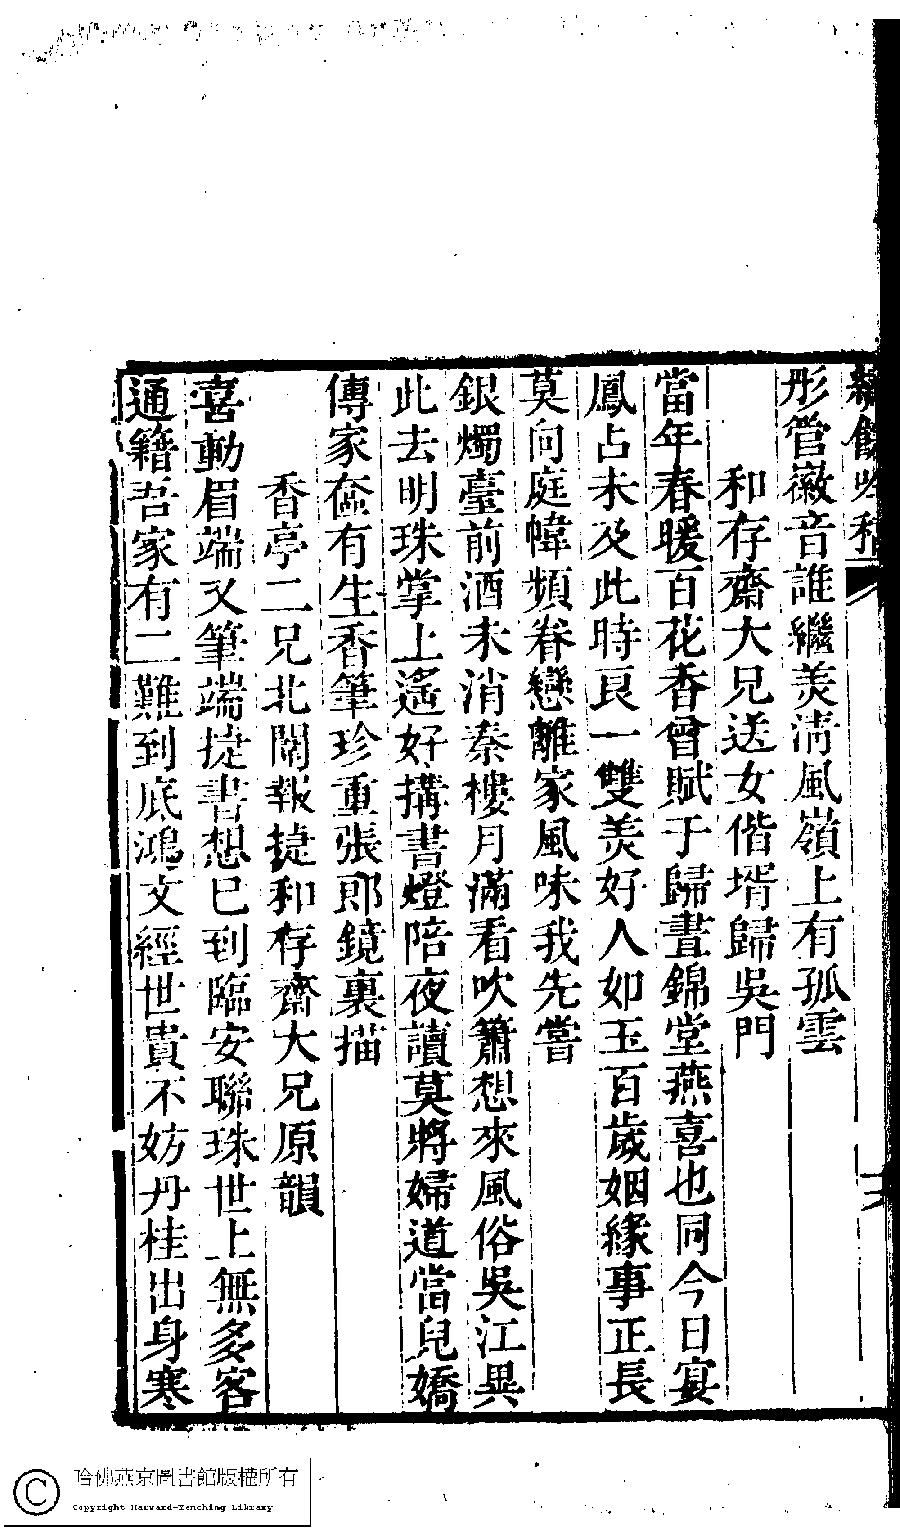 繡餘吟稿
彤管徽音誰繼羡淸風嶺上有孤雲
和存齋大兄送女偕壻歸吳門
當年春暖百花香曾賦于歸晝錦堂燕喜也同今日宴
鳳占未及此時良一雙羡好人如玉百歲姻緣事正長
莫向庭幃頻眷戀離家風味我先嘗
銀燭臺前酒未消秦樓月滿看吹簫想來風俗吳江異
此去明珠掌上遙好搆書燈陪夜讀莫將婦道當兒嬌
傳家奩有生香筆珍重張郎鏡裏描
香亭二兄北闈報捷和存齋大兄原韻
喜動眉端又筆端捷書想已到臨安聯珠世上無多客
通籍吾家有二難到底鴻文經世貴不妨丹桂出身寒
哈佛燕京圖書館版權所有
Copyright Harvard-Yenching Library